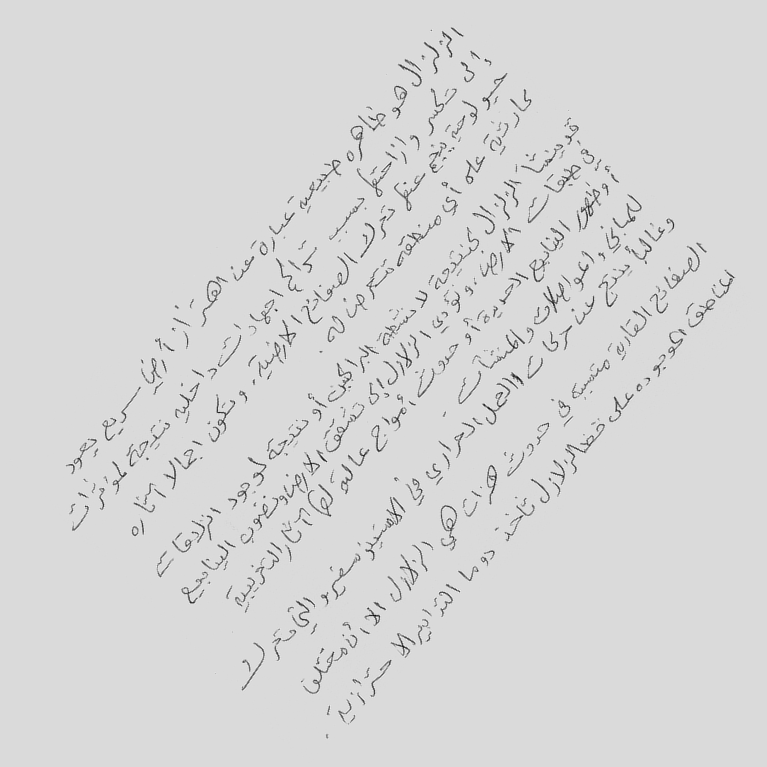 الزلزال هو ظاهره طبيعية عبارة عن اهتزاز أرضي سريع يعود
إلى تكسر وإزاحتها بسبب تراكم اجهادات داخلية نتيجة لمؤثرات
جيولوجية ينتج عنها تحرك الصفائح الارضية. وتكون اجمالا آثاره
كارثية على أي منطقه تتعرض له.
قد ينشأ الزلزال كنتيجة لأنشطة البراكين أو نتيجة لوجود انزلاقات
في طبقات الارض. وتؤدي الزلازل إلى تشقق الارض ونضوب الينابيع
أو ظهور الينابيع الجديدة أو حدوث أمواج عالية لها آثار التخريبية
للمباني والمواصلات والمنشآت.
وغالبا ينتج عن حركات والحمل الحراري في الاستينوسفير والتي تحرك
الصفائح القارية متسببة في حدوث هزات هي الزلازل الا ان مختلف
المناطق الموجوده على خط الزلازل تاخذ دوما التدابير الاحترازية.